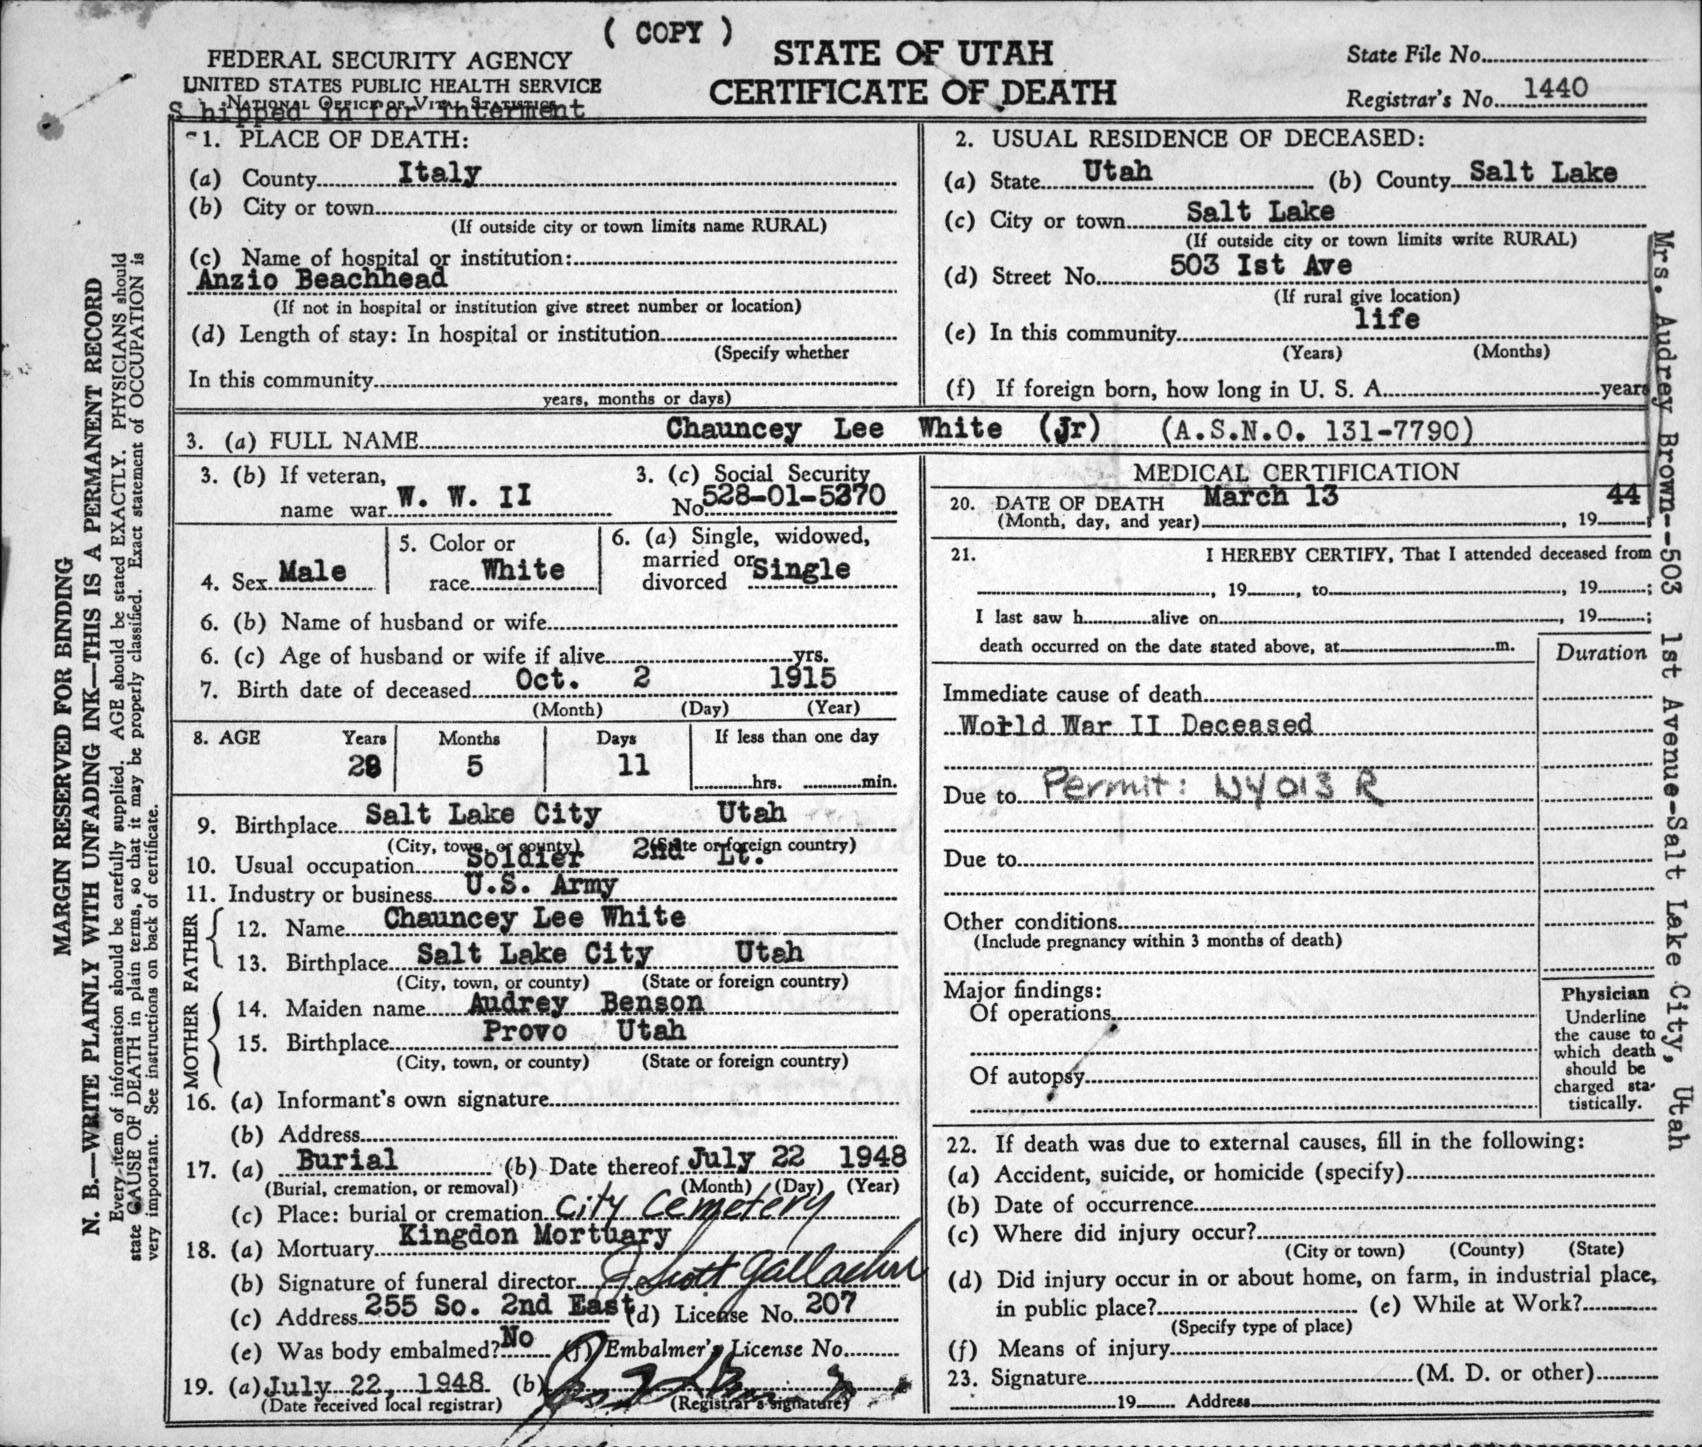 ( COPY )
FEDERAL SECURITY AGENCY
UNITED STATES PUBLIC HEALTH SERVICE
NATIONAL OFFICE OF VITAL STATISTICS
Shipped in for interment
STATE OF UTAH
CERTIFICATE OF DEATH
State File No.
Registrar's No. 1440
1. PLACE OF DEATH:
(a) County Italy
(b) City or town
(If outside city or town limits name RURAL)
(c) Name of hospital or institution:
Anzio Beachhead
(If not in hospital or institution give street number or location)
(d) Length of stay: In hospital or institution
(Specify whether
In this community
years, months or days)
2. USUAL RESIDENCE OF DECEASED:
(a) State Utah (b) County Salt Lake
(c) City or town Salt Lake
(If outside city or town limits write RURAL)
(d) Street No. 503 Ist Ave
(If rural give location)
(e) In this community life
(Years) (Months)
(f) If foreign born, how long in U. S. A. years
3. (a) FULL NAME Chauncey Lee White (Jr) (A.S.N.O. 131-7790)
3. (b) If veteran,
name war W. W. II
3. (c) Social Security
No. 528-01-5270
4. Sex Male
5. Color or
race White
6. (a) Single, widowed,
married or
divorced Single
6. (b) Name of husband or wife
6. (c) Age of husband or wife if alive yrs.
7. Birth date of deceased Oct. 2 1915
(Month) (Day) (Year)
8. AGE Years Months Days If less than one day
28 5 11 hrs. min.
9. Birthplace Salt Lake City Utah
(City, town, or county) (State or foreign country)
10. Usual occupation Soldier 2nd Lt.
11. Industry or business U.S. Army
FATHER
12. Name Chauncey Lee White
13. Birthplace Salt Lake City Utah
(City, town, or county) (State or foreign country)
MOTHER
14. Maiden name Audrey Benson
15. Birthplace Provo Utah
(City, town, or county) (State or foreign country)
16. (a) Informant's own signature
(b) Address
17. (a) Burial (b) Date thereof July 22 1948
(Burial, cremation, or removal) (Month) (Day) (Year)
(c) Place: burial or cremation City Cemetery
18. (a) Mortuary Kingdon Mortuary
(b) Signature of funeral director J Scott Gallacher
(c) Address 255 So. 2nd East (d) License No. 207
(e) Was body embalmed? No (f) Embalmer's License No.
19. (a) July 22, 1948 (b)
(Date received local registrar) (Registrar's signature)
MEDICAL CERTIFICATION
20. DATE OF DEATH March 13 44
(Month, day, and year) , 19
21. I HEREBY CERTIFY, That I attended deceased from
, 19 , to , 19 ;
I last saw h alive on , 19 ;
death occurred on the date stated above, at m.
Duration
Immediate cause of death
World War II Deceased
Due to Permit: NY 013 R
Due to
Other conditions
(Include pregnancy within 3 months of death)
Major findings:
Of operations
Of autopsy
Physician
Underline
the cause to
which death
should be
charged sta-
tistically.
22. If death was due to external causes, fill in the following:
(a) Accident, suicide, or homicide (specify)
(b) Date of occurrence
(c) Where did injury occur?
(City or town) (County) (State)
(d) Did injury occur in or about home, on farm, in industrial place,
in public place? (e) While at Work?
(Specify type of place)
(f) Means of injury
23. Signature (M. D. or other)
19 Address
MARGIN RESERVED FOR BINDING
N. B.—WRITE PLAINLY WITH UNFADING INK—THIS IS A PERMANENT RECORD
Every item of information should be carefully supplied. AGE should be stated EXACTLY. PHYSICIANS should
state CAUSE OF DEATH in plain terms, so that it may be properly classified. Exact statement of OCCUPATION is
very important. See instructions on back of certificate.
Mrs. Audrey Brown--503 1st Avenue-Salt Lake City, Utah